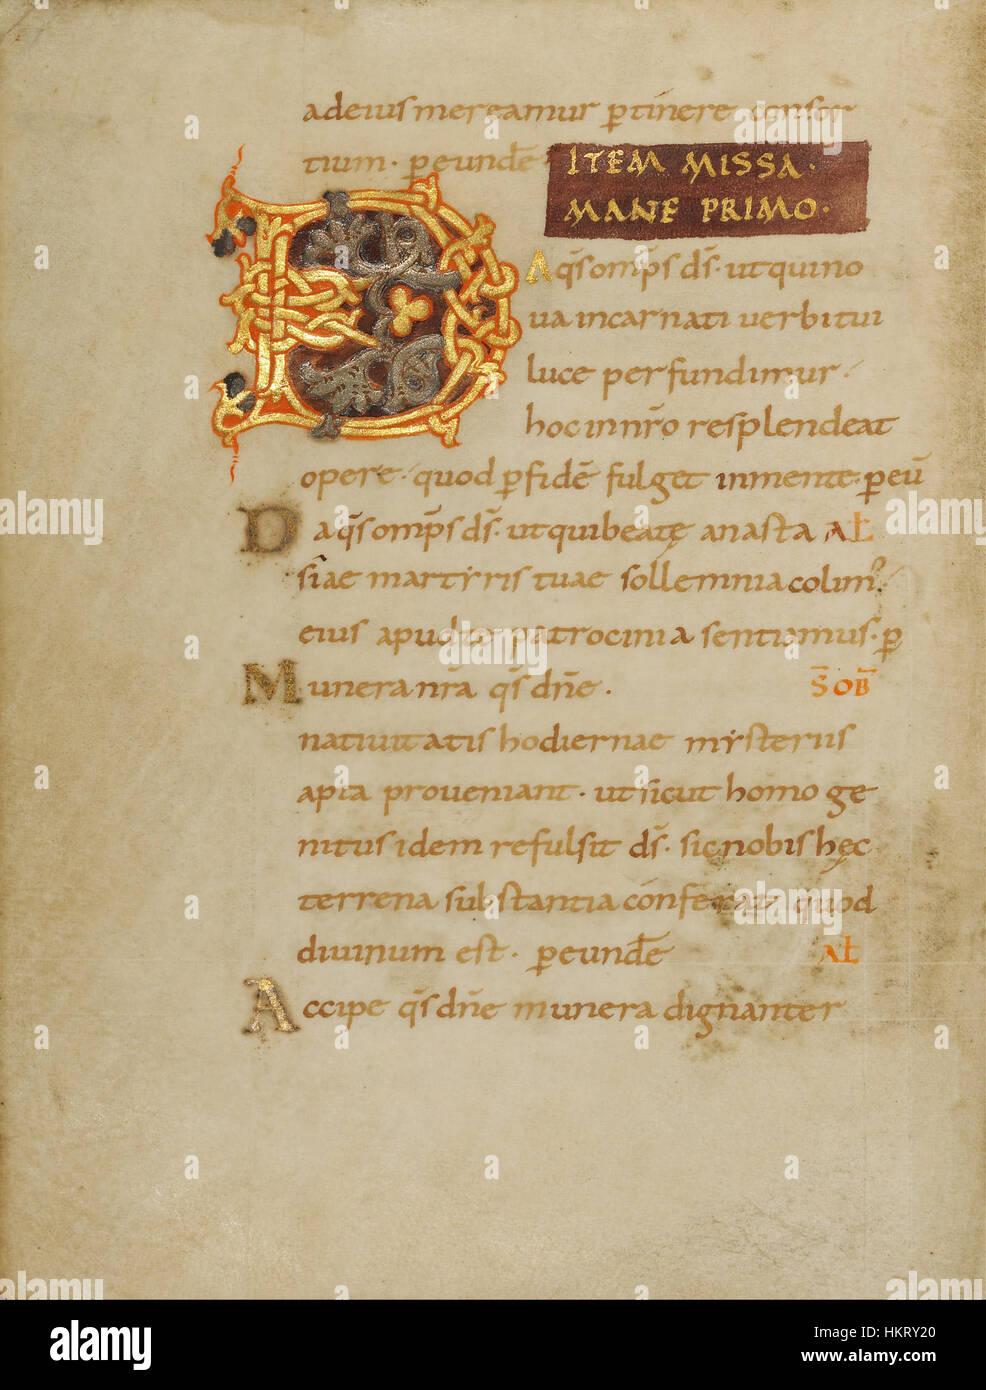 adeius mereamur ꝑtinere consor
tium · ꝑeundē
ITEM MISSA ·
MANE PRIMO ·
DA q̄s omp̄s d̄s · ut qui no
ua incarnati uerbi tui
luce perfundimur ·
hoc in nr̄o resplendeat
opere · quod ꝑ fidē fulget in mente · ꝑ eū
DA q̄s omp̄s d̄s · ut qui beatę anasta AL̄
siae martyris tuae sollemnia colim᷒ ·
eius apud te patrocinia sentiamus · ꝑ
Munera nr̄a q̄s dn̄e · S̄ OB̄
natiuitatis hodiernae mysteriis
apta proueniant · ut sicut homo ge
nitus idem refulsit d̄s · sic nobis hęc
terrena substantia conferat quod
diuinum est · ꝑeundē AL̄
Accipe q̄s dn̄e munera dignanter
alamy
Image ID: HKRY20
www.alamy.com